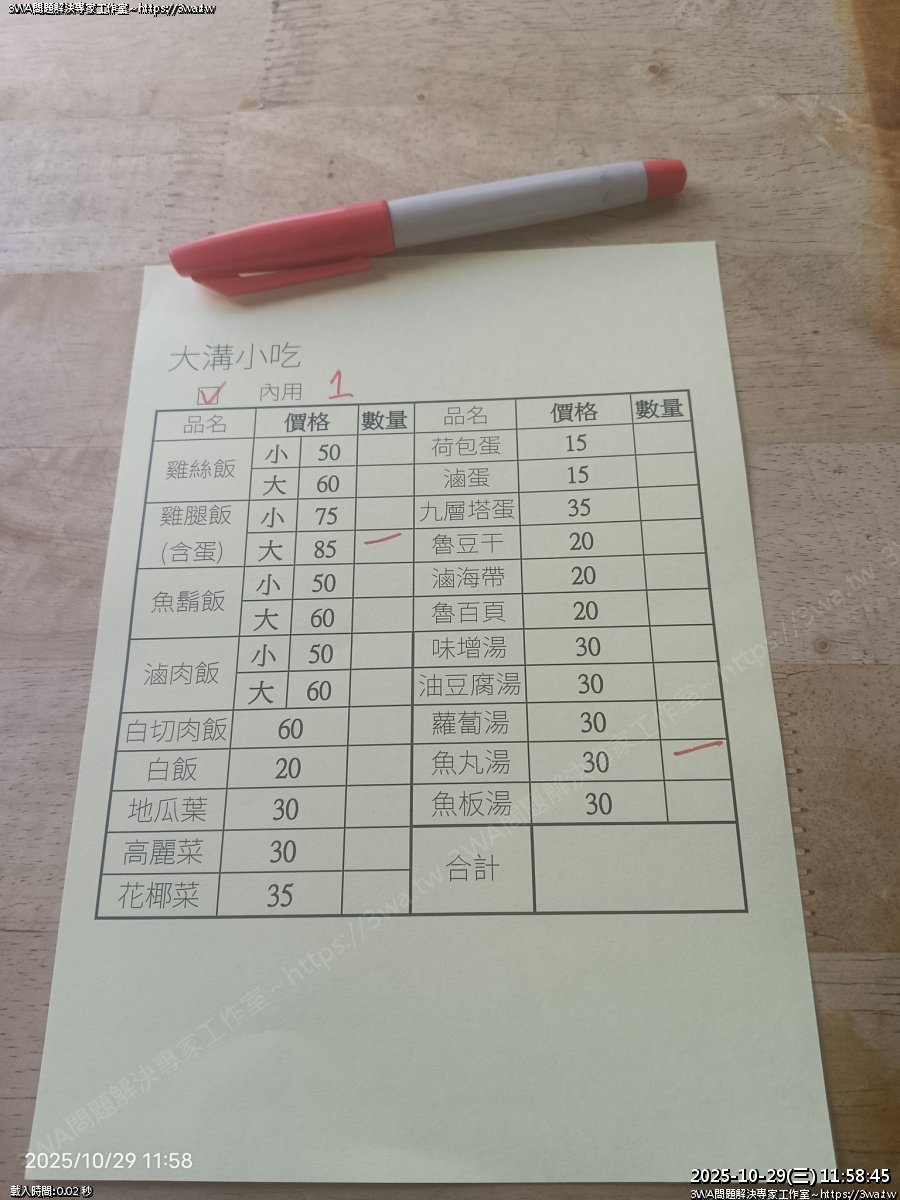 3WA問題解決專家工作室~https://3wa.tw
大溝小吃
☑ 內用 1
品名 價格 數量 品名 價格 數量
雞絲飯 小 50 荷包蛋 15
大 60 滷蛋 15
雞腿飯 小 75 九層塔蛋 35
(含蛋) 大 85 一 魯豆干 20
魚鬍飯 小 50 滷海帶 20
大 60 魯百頁 20
滷肉飯 小 50 味增湯 30
大 60 油豆腐湯 30
白切肉飯 60 蘿蔔湯 30
白飯 20 魚丸湯 30 一
地瓜葉 30 魚板湯 30
高麗菜 30 合計
花椰菜 35
3WA問題解決專家工作室~https://3wa.tw 3WA問題解決專家工作室~https://3wa.tw
2025/10/29 11:58
載入時間:0.02 秒
2025-10-29(三) 11:58:45
3WA問題解決專家工作室~https://3wa.tw